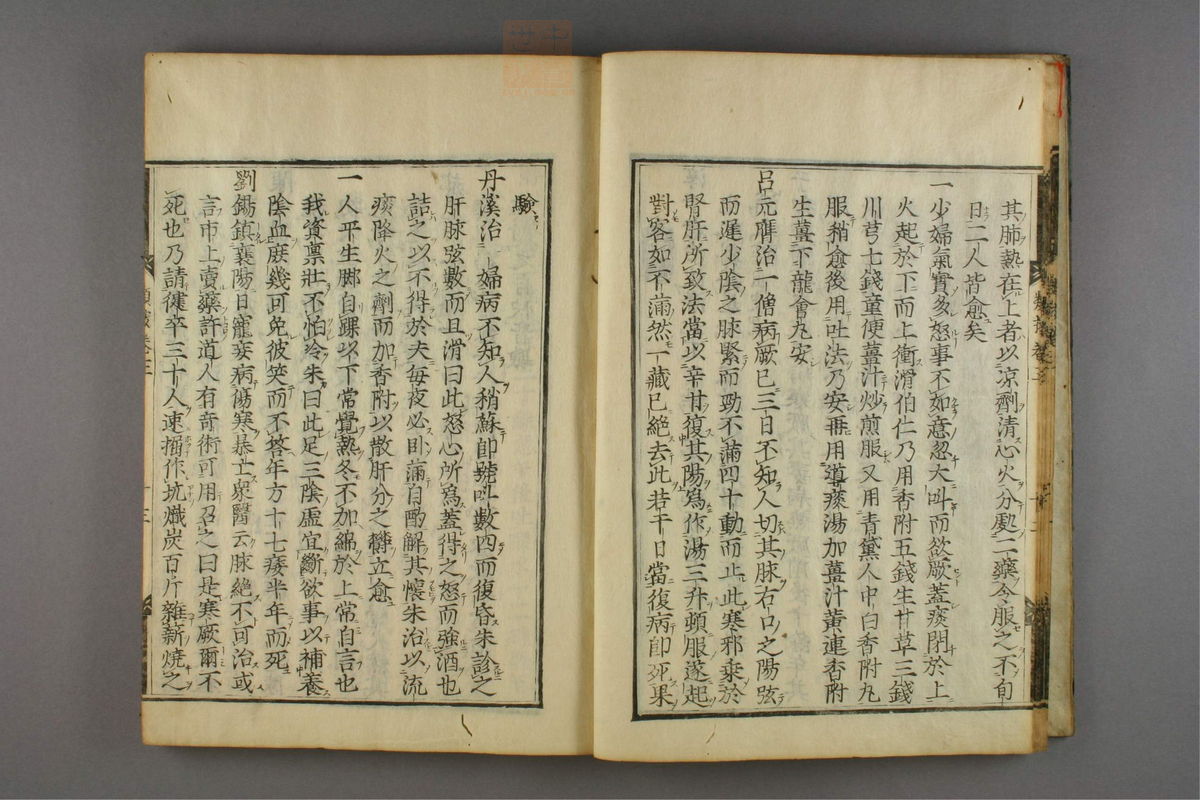 其肺熱在上者以凉劑清心火分處二藥令服之不旬
日二人皆愈矣
一少婦氣實多怒事不如意忽大叫而欲厥蓋痰閉於上
火起於下而上衝滑伯仁乃用香附五錢生甘草三錢
川芎七錢童便薑汁炒煎服又用青黛人中白香附丸
服稍愈後用吐法乃安再用導痰湯加薑汁黃連香附
生薑下龍會丸安
呂元膺治一僧病厥已三日不知人切其脉右口之陽弦
而遲少陰之脉緊而勁不滿四十動而止此寒邪乘於
腎肝所致法當以辛甘復其陽爲作湯三升頓服遂起
對客如不滿然一藏已絕去此若干日當復病卽死果
驗
丹溪治一婦病不知人稍蘇卽號叫數四而復昏朱診之
肝脉弦數而且滑曰此怒心所爲蓋得之怒而強酒也
詰之以不得於夫每夜必引滿自酌解其懷朱治以流
痰降火之劑而加香附以散肝分之欝立愈
一人平生脚自踝以下常覺熱冬不加綿於上常自言也
我資禀壯不怕冷朱曰此足三陰虛宜斷欲事以補養
陰血庶幾可免彼笑而不答年方十七痿半年而死
劉錫鎮襄陽日寵妾病傷寒暴亡衆醫云脉絕不可治或
言市上賣藥許道人有奇術可用召之曰是寒厥爾不
死也乃請健卒三十人速掘作坑熾炭百斤雜薪燒之